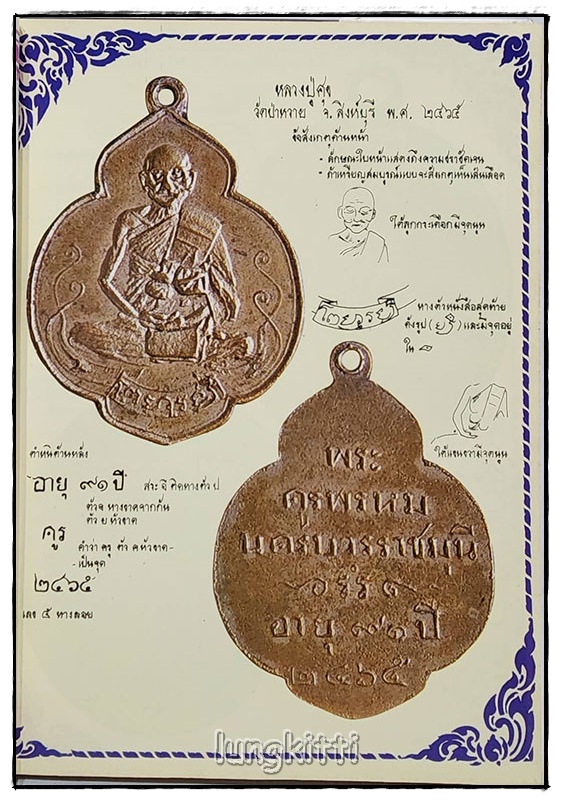 หลวงปู่ศุข
วัดป่าหวาย จ.สิงห์บุรี พ.ศ. ๒๔๖๕
ข้อสังเกตุด้านหน้า
- ลักษณะใบหน้าแสดงถึงความชราชัดเจน
- ถ้าเหรียญสมบูรณ์แบบจะสังเกตุเห็นเส้นเลือด
ใต้ลูกกระเดือกมีจุดนูน
หางตัวหนังสือสุดท้าย
ดังรูป และมีจุดอยู่
ใน
ใต้แขนขวามีจุดนูน
ตำหนิด้านหลัง
อายุ ๙๑ ปี สระ อิ ติดหางตัว ป
ตัว ย หัวขาด
ครู คำว่า ครู ตัว ค หัวขาด-
-เป็นจุด
๒๔๖๕
เลข ๕ หางลอย
พระ
ครูพรหม
นครบวรราชมุนี
อายุ ๙๑ ปี
๒๔๖๕
lungkitti